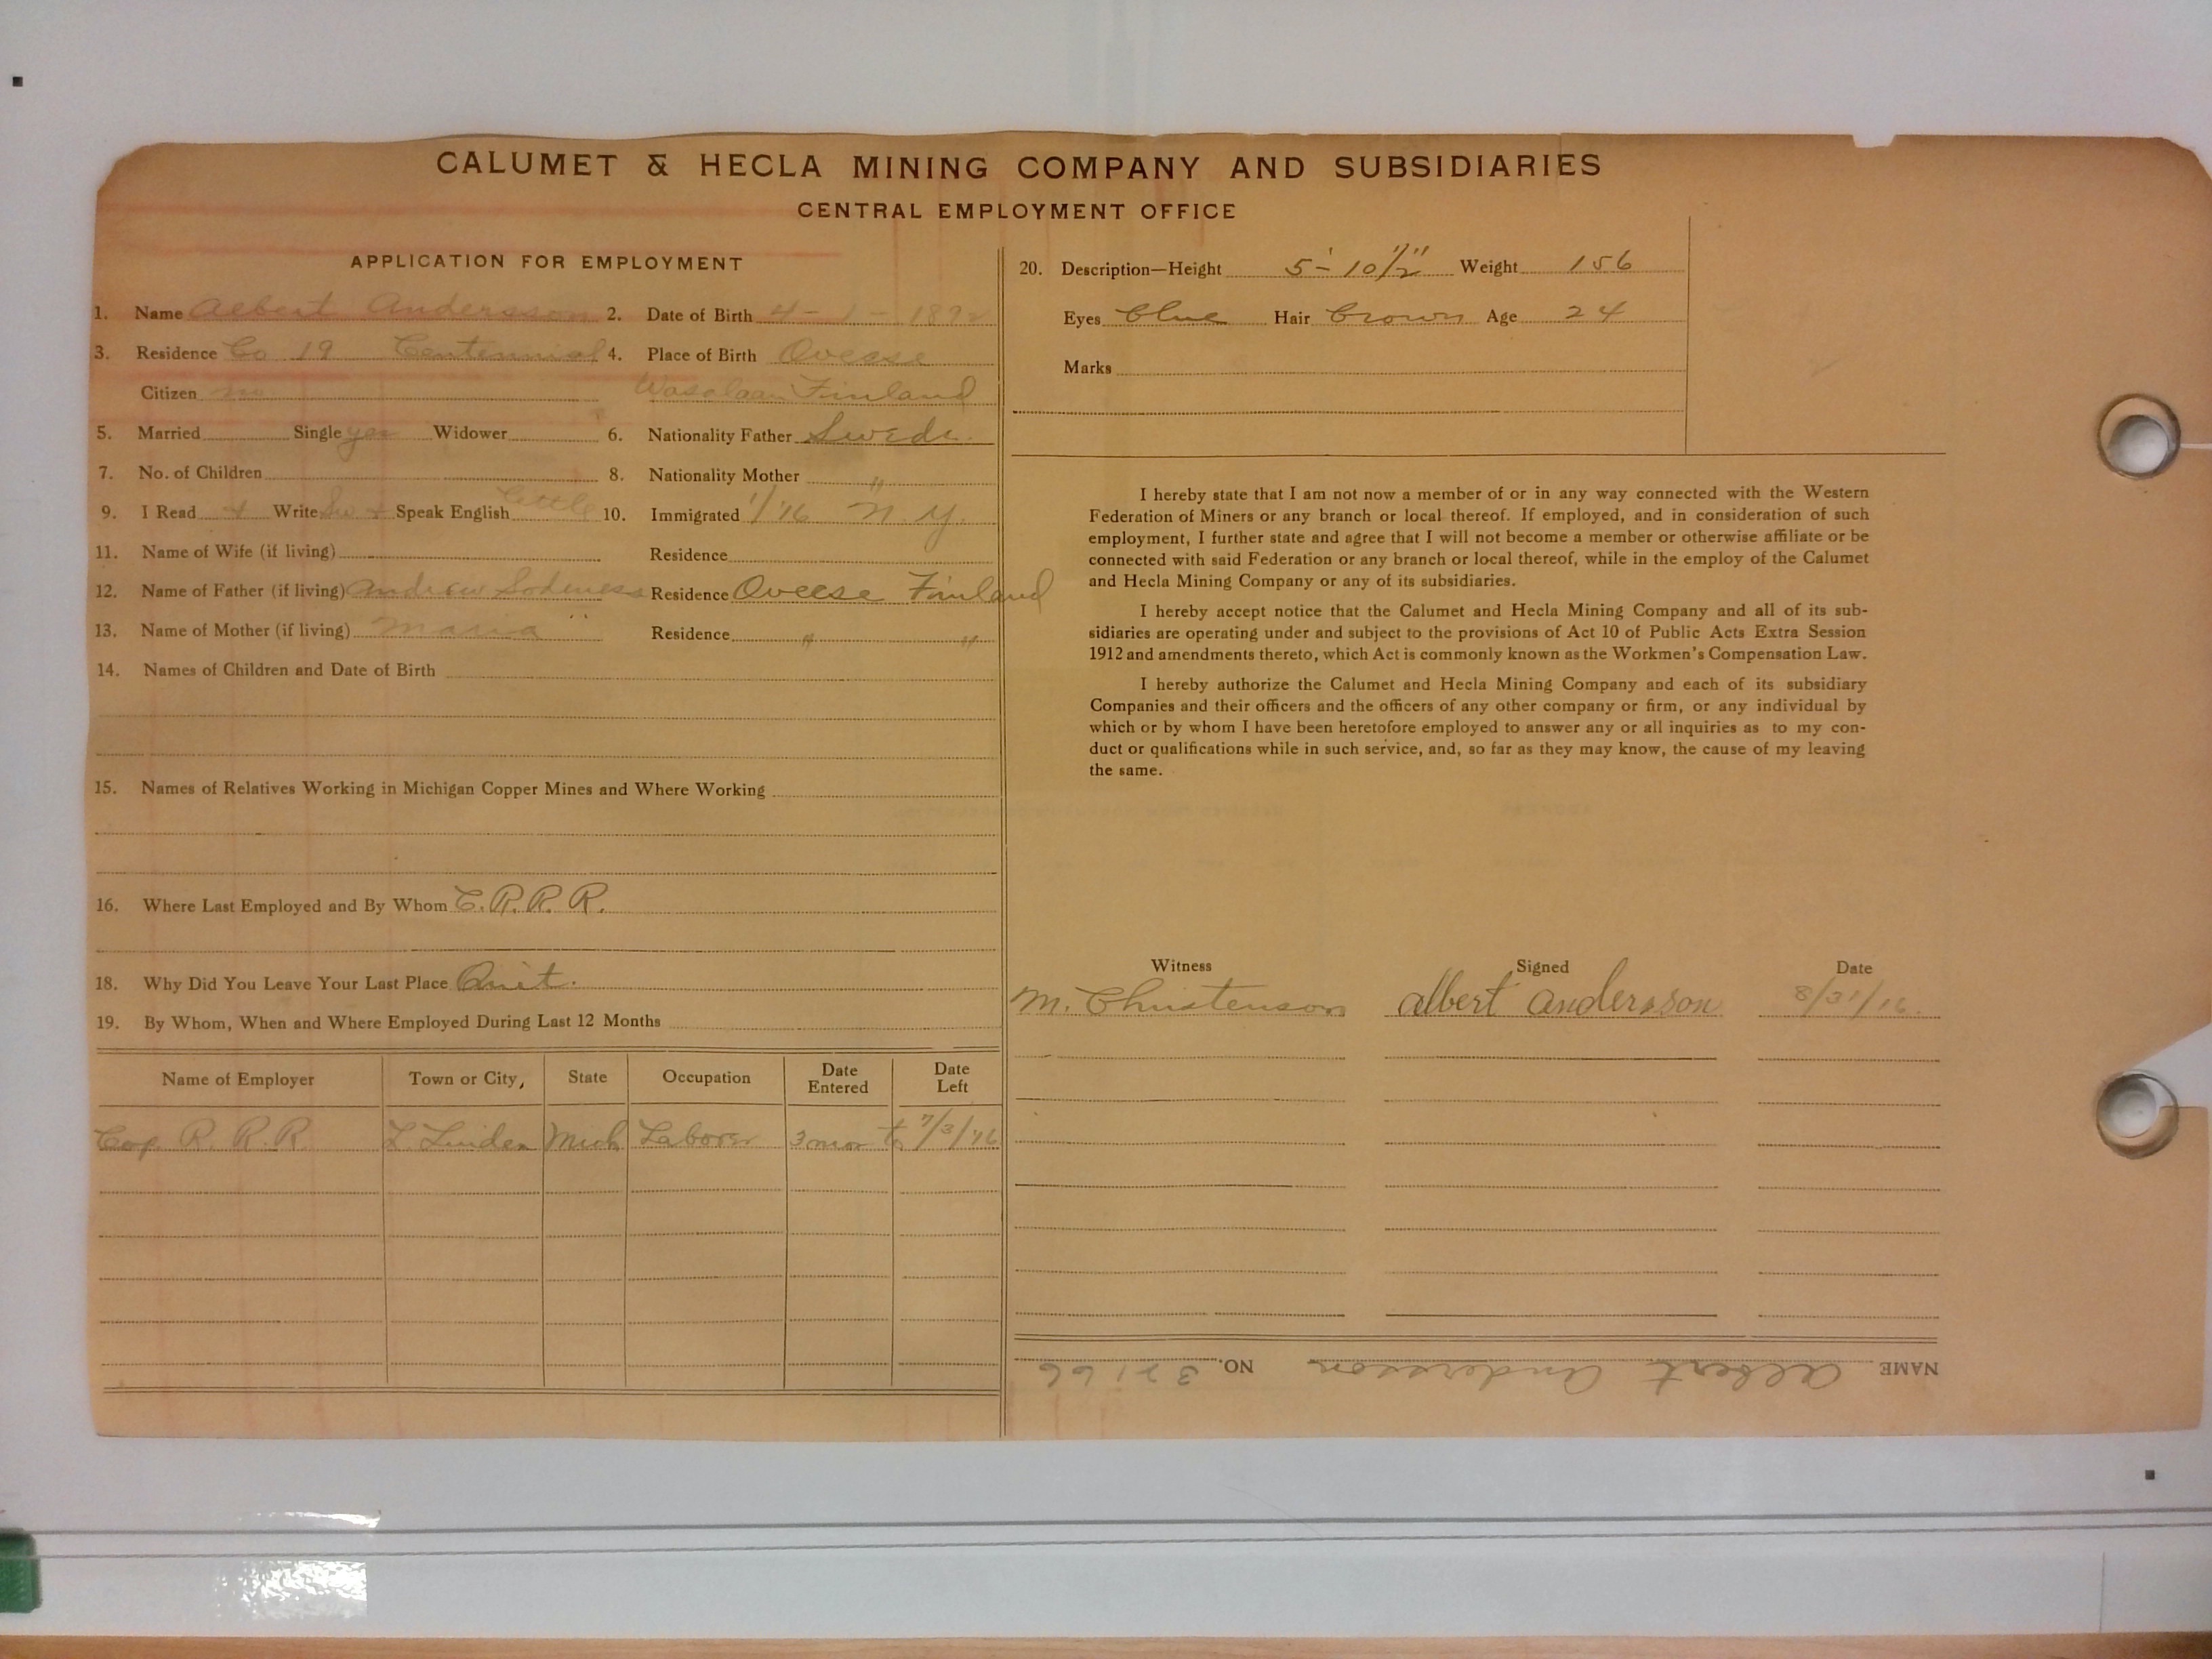 CALUMET & HECLA MINING COMPANY AND SUBSIDIARIES
CENTRAL EMPLOYMENT OFFICE
APPLICATION FOR EMPLOYMENT
1. Name Albert Andersson 2. Date of Birth 4 - 1 - 1892
3. Residence Co 19 Centennial 4. Place of Birth Oveese
Citizen no Wasalaan Finland
5. Married Single yes Widower 6. Nationality Father Swede.
7. No. of Children 8. Nationality Mother "
9. I Read + Write Sw + Speak English little 10. Immigrated 1/'16 N. Y.
11. Name of Wife (if living) Residence
12. Name of Father (if living) Andrew Residence Oveese Finland
13. Name of Mother (if living) Maria " Residence " "
14. Names of Children and Date of Birth
15. Names of Relatives Working in Michigan Copper Mines and Where Working
16. Where Last Employed and By Whom C. R. R. R.
18. Why Did You Leave Your Last Place Quit.
19. By Whom, When and Where Employed During Last 12 Months
Name of Employer Town or City, State Occupation Date Entered Date Left
Cop. R. R. R. L. Linden Mich Laborer 3 mos to 7/3/'16
20. Description—Height 5'- 10 1/2" Weight 156
Eyes blue Hair brown Age 24
Marks
I hereby state that I am not now a member of or in any way connected with the Western
Federation of Miners or any branch or local thereof. If employed, and in consideration of such
employment, I further state and agree that I will not become a member or otherwise affiliate or be
connected with said Federation or any branch or local thereof, while in the employ of the Calumet
and Hecla Mining Company or any of its subsidiaries.
I hereby accept notice that the Calumet and Hecla Mining Company and all of its sub-
sidiaries are operating under and subject to the provisions of Act 10 of Public Acts Extra Session
1912 and amendments thereto, which Act is commonly known as the Workmen's Compensation Law.
I hereby authorize the Calumet and Hecla Mining Company and each of its subsidiary
Companies and their officers and the officers of any other company or firm, or any individual by
which or by whom I have been heretofore employed to answer any or all inquiries as to my con-
duct or qualifications while in such service, and, so far as they may know, the cause of my leaving
the same.
Witness Signed Date
M. Christenson Albert Andersson 8/31/16.
NAME Albert Andersson NO. 32166